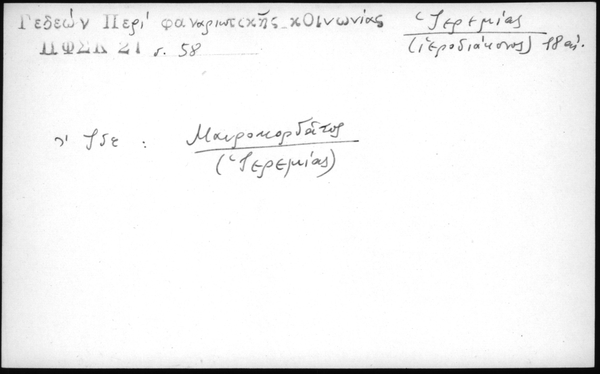 Γεδεών Περί φαναριωτικῆς κΟινωνίας
ΠΦΣΚ 21 σ. 58
Ἱερεμίας
(ἱεροδιάκονος) 18 αἰ.
Ἰδε : Μαυροκορδᾶτος
(Ἱερεμίας)